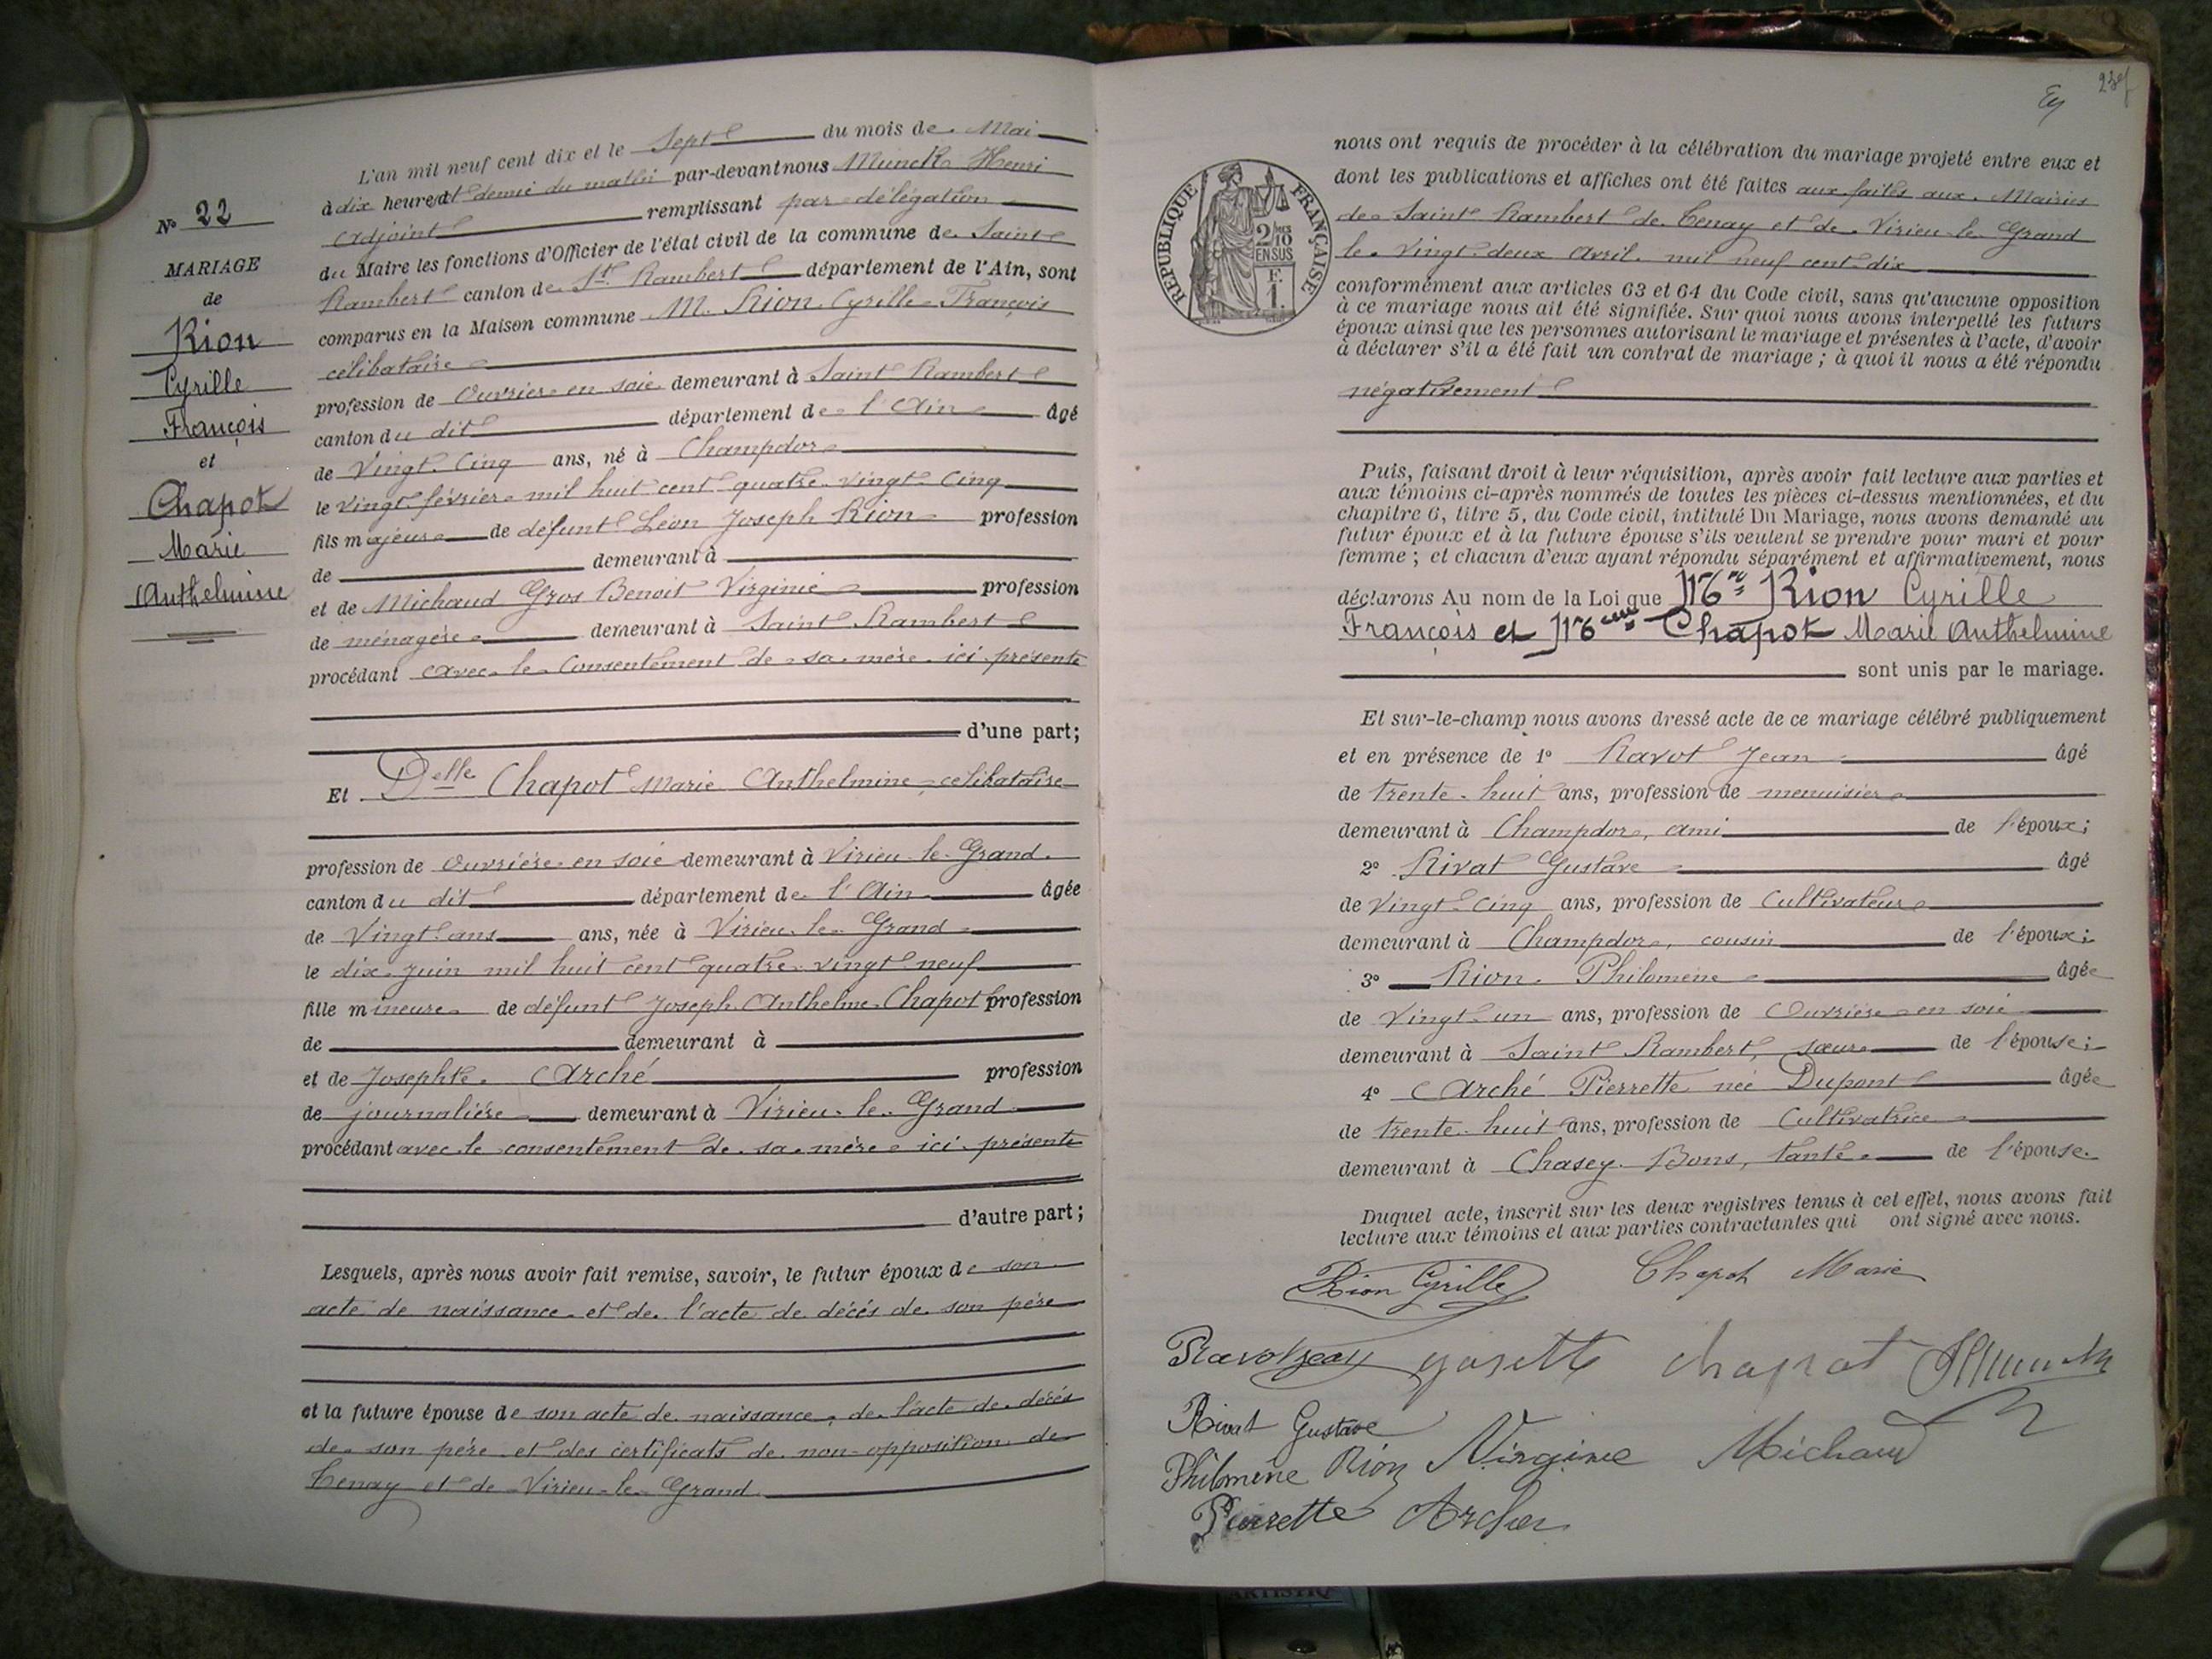 N° 22
MARIAGE
de
Rion
Cyrille
François
et
Chapot
Marie
Anthelmine
L'an mil neuf cent dix et le Sept du mois de Mai
à dix heures et demie du matin par-devant nous Munck Henri
Adjoint remplissant par délégation
du Maire les fonctions d'Officier de l'état civil de la commune de Saint
Rambert canton de St. Rambert département de l'Ain, sont
comparus en la Maison commune M. Rion Cyrille François
célibataire
profession de Ouvrier en soie demeurant à Saint Rambert
canton du dit département de l'Ain âgé
de Vingt Cinq ans, né à Champdor
le vingt février mil huit cent quatre vingt Cinq
fils majeur de défunt Léon Joseph Rion profession
de demeurant à
et de Michaud Gros Benoit Virginie profession
de ménagère demeurant à Saint Rambert
procédant avec le Consentement de sa mère ici présente
d'une part;
Et Delle Chapot Marie Anthelmine célibataire
profession de Ouvrière en soie demeurant à Virieu-le-Grand
canton du dit département de l'Ain âgée
de Vingt ans ans, née à Virieu le Grand
le dix Juin mil huit cent quatre vingt neuf
fille mineure de défunt Joseph Anthelme Chapot profession
de demeurant à
et de Josephte Arché profession
de journalière demeurant à Virieu-le-Grand
procédant avec le consentement de sa mère ici présente
d'autre part;
Lesquels, après nous avoir fait remise, savoir, le futur époux de son
acte de naissance et de l'acte de décès de son père
et la future épouse de son acte de naissance, de l'acte de décès
de son père et des certificats de non-opposition de
Tenay et de Virieu-le-Grand
RÉPUBLIQUE FRANÇAISE
2/10
EN SUS
F.
1.
nous ont requis de procéder à la célébration du mariage projeté entre eux et
dont les publications et affiches ont été faites aux faites aux Mairies
de Saint Rambert de Tenay et de Virieu-le-Grand
le vingt-deux Avril mil neuf cent dix
conformément aux articles 63 et 64 du Code civil, sans qu'aucune opposition
à ce mariage nous ait été signifiée. Sur quoi nous avons interpellé les futurs
époux ainsi que les personnes autorisant le mariage et présentes à l'acte, d'avoir
à déclarer s'il a été fait un contrat de mariage ; à quoi il nous a été répondu
négativement
Puis, faisant droit à leur réquisition, après avoir fait lecture aux parties et
aux témoins ci-après nommés de toutes les pièces ci-dessus mentionnées, et du
chapitre 6, titre 5, du Code civil, intitulé Du Mariage, nous avons demandé au
futur époux et à la future épouse s'ils veulent se prendre pour mari et pour
femme ; et chacun d'eux ayant répondu séparément et affirmativement, nous
déclarons Au nom de la Loi que Mr Rion Cyrille
François et Melle Chapot Marie Anthelmine
sont unis par le mariage.
Et sur-le-champ nous avons dressé acte de ce mariage célébré publiquement
et en présence de 1° Ravot Jean âgé
de trente-huit ans, profession de menuisier
demeurant à Champdor, ami de l'époux;
2° Rivat Gustave âgé
de Vingt-Cinq ans, profession de Cultivateur
demeurant à Champdor, cousin de l'époux;
3° Rion Philomène âgée
de Vingt-un ans, profession de Ouvrière en soie
demeurant à Saint Rambert, sœur de l'épouse;
4° Arché Pierrette née Dupont âgée
de trente-huit ans, profession de Cultivatrice
demeurant à Chasey-Bons, tante de l'épouse.
Duquel acte, inscrit sur les deux registres tenus à cet effet, nous avons fait
lecture aux témoins et aux parties contractantes qui ont signé avec nous.
Rion Cyrille Chapot Marie
Ravot Jean Josette chapot
Rivat Gustave
Philomène Rion Virginie Michaud
Pierrette Archer